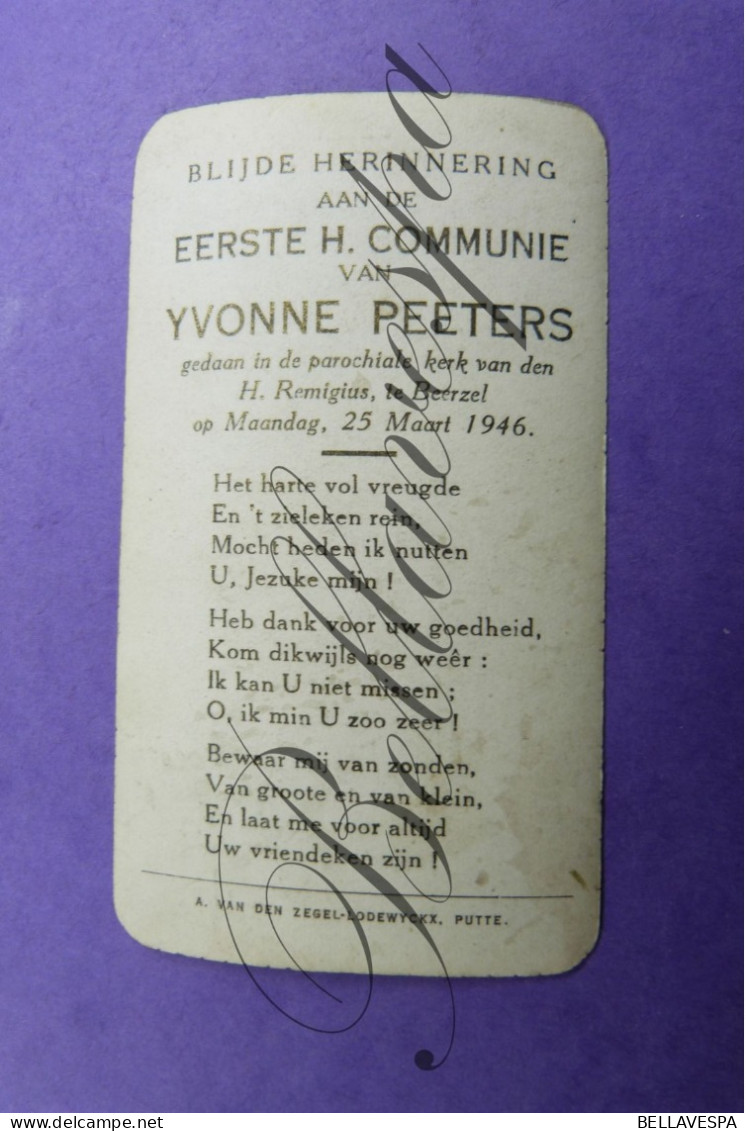 BLIJDE HERINNERING
AAN DE
EERSTE H. COMMUNIE
VAN
YVONNE PEETERS
gedaan in de parochiale kerk van den
H. Remigius, te Beerzel
op Maandag, 25 Maart 1946.
Het harte vol vreugde
En 't zieleken rein,
Mocht heden ik nutten
U, Jezuke mijn !
Heb dank voor uw goedheid,
Kom dikwijls nog weêr :
Ik kan U niet missen ;
O, ik min U zoo zeer !
Bewaar mij van zonden,
Van groote en van klein,
En laat me voor altijd
Uw vriendeken zijn !
A. VAN DEN ZEGEL-LODEWYCKX, PUTTE.
Bellavespa
BELLAVESPA